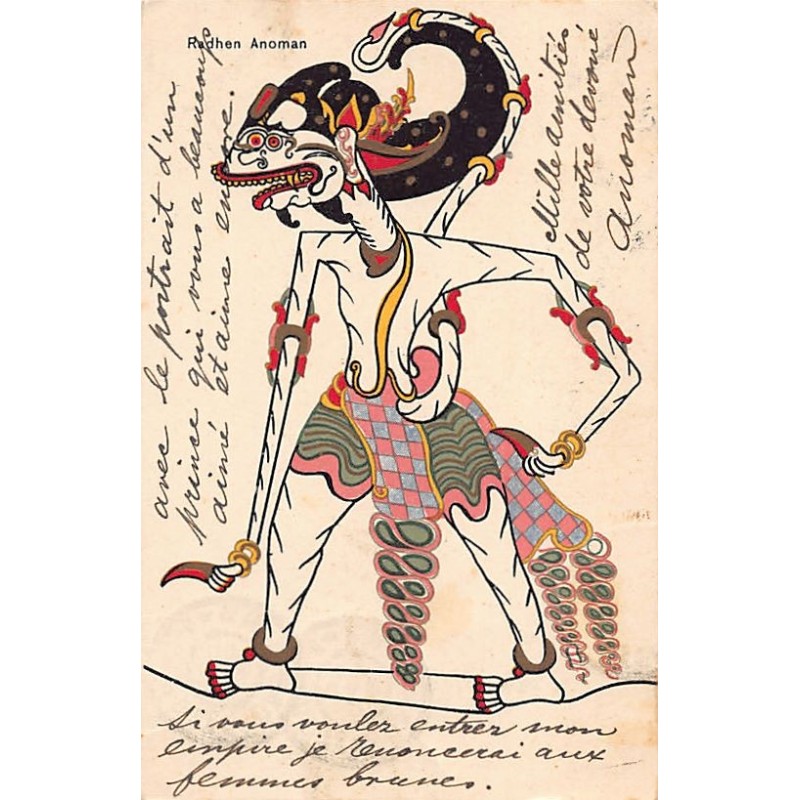 Radhen Anoman
Mille amitiés
de votre dévoué
Anoman
avec le portrait d'un
prince qui vous a beaucoup
aimé et aime encore.
Si vous voulez entrez mon
empire je renoncerai aux
femmes brunes.